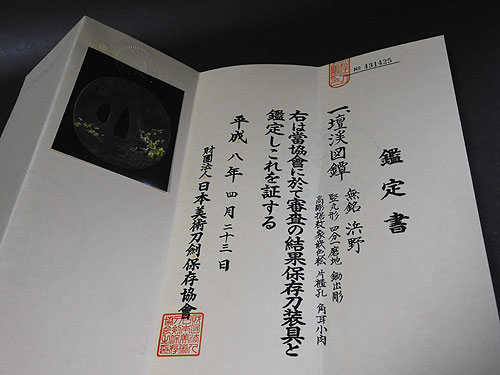 鑑定書
№ 431425
一、壇渓図鐔 無銘 浜野
竪丸形 四分一磨地 鋤出彫
高彫据紋象嵌色絵 片櫃孔 角耳小肉
右は當協會に於て審査の結果保存刀装具と
鑑定しこれを証する
平成八年四月二十三日
財團法人 日本美術刀劍保存協會